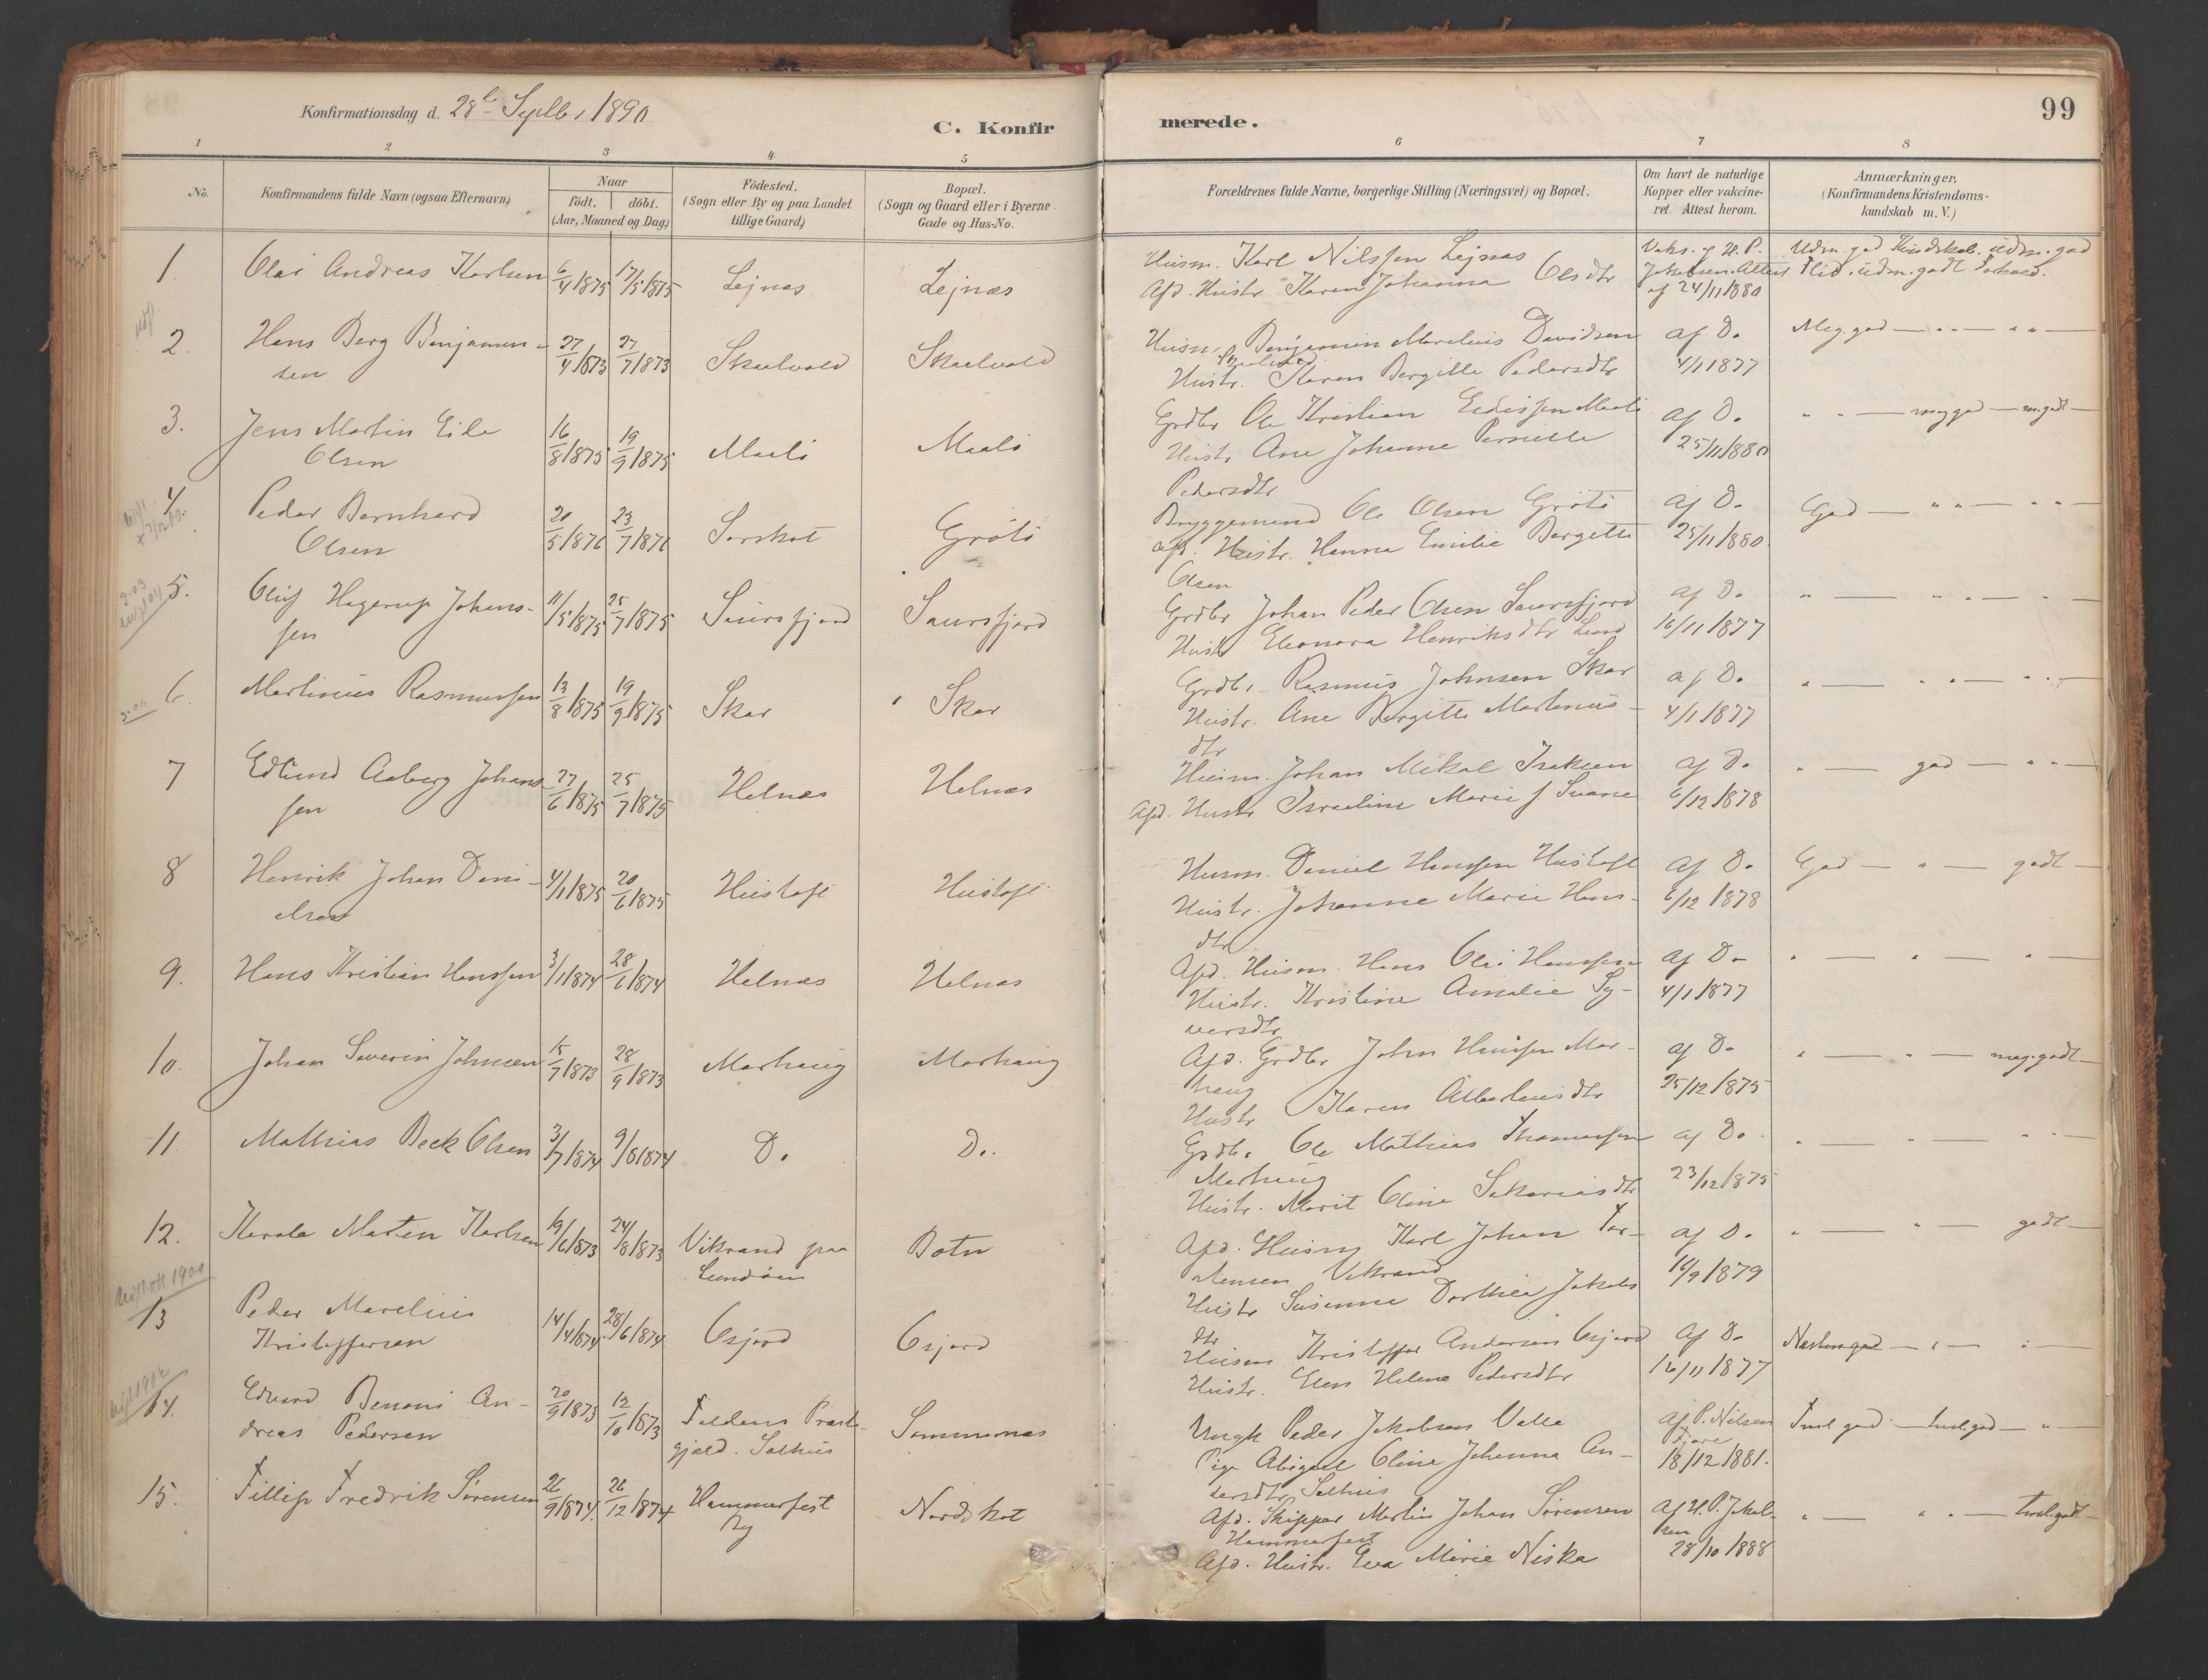 99
Konfirmationsdag d. 28de Septbr 1890
C. Konfirmerede.
1 2 3 4 5 6 7 8
No.
Konfirmandens fulde Navn (ogsaa Efternavn)
Naar
födt. döbt.
(Aar, Maaned og Dag)
Födested.
(Sogn eller By og paa Landet
tillige Gaard)
Bopæl.
(Sogn og Gaard eller i Byerne
Gade og Hus-No.
Forældrenes fulde Navne, borgerlige Stilling (Næringsvei) og Bopæl.
Om havt de naturlige
Kopper eller vakcine-
ret. Attest herom.
Anmærkninger,
(Konfirmandens Kristendoms-
kundskab m. V.)
1. Olai Andreas Karlsen 6/4 1875 17/5 1875 Lejnæs Lejnæs
Husm. Karl Nilssen Lejnæs
Afd. Hustr. Karen Johanna Olsdtr
Vaks. af H. P.
Jakobsen. Attest
af 24/11 1880
Udm. god Kundskab. udm. god
Flid. udm. godt Forhold.
2. Hans Berg Benjamin-
sen 27/4 1873 27/7 1873 Skaalvold Skaalvold
Husm. Benjamin Marelius Davidsen
Skaalvold
Hustr. Karen Bergitte Pedersdtr
af Do
4/1 1877
Meg. god — " — " —
3. Jens Martin Eile
Olsen 16/8 1875 19/9 1875 Maalö Maalö
Grdbr Ole Kristian Eidissen Maalö
Hustr. Ane Johanne Pernille
Pedersdtr
af Do
25/11 1880
" " — meg god — m. godt —
4. Peder Bernhard
Olsen 20/5 1876 23/7 1876 Sorskot Grötö
Bryggemand Ole Olsen Grötö
afd. Hustr. Hanna Emilie Bergitte
Olsen
af Do
25/11 1880.
God — " " — " "
5. Oluf Hagerup Johans-
sen 11/5 1875 25/7 1875 Saursfjord Saursfjord
Grdbr Johan Peder Olsen Saursfjord
Hustr Eleonora Henriksdtr Lund
af Do
16/11 1877
" — " " — " —
6. Martinus Rasmussen 13/8 1875 19/9 1875 Skar Skar
Grdbr. Rasmus Johnsen Skar
Hustr. Ane Bergitte Martinus-
dtr
af Do
4/1 1877
" — " " — " —
7 Edlund Aaberg Johans-
sen 27/6 1875 25/7 1875 Helnæs Helnæs
Husm. Johan Mikal Isaksen
Afd. Hustr Israeline Marie f Svane
af Do
6/12 1878
" — god — " " —
8 Henrik Johan Dani-
elsen 4/1 1875 20/6 1875 Hustoft Hustoft
Husm. Daniel Hanssen Hustoft
Hustr. Johanne Marie Hans-
dtr
af Do
6/12 1878
God — " — godt —
9. Hans Kristian Hanssen 3/1 1874 28/6 1874 Helnæs Helnæs
Afd. Husm. Hans Olai Hanssen
Hustr. Kristine Amalie Sy-
versdtr
af Do
4/1 1877
" — " — " —
10. Johan Severin Johnsen 15/7 1873 28/9 1873 Marhaug Marhaug
Afd. Grdbr John Hanssen Mar-
haug
Hustr Karen Albertusdtr
af Do
25/12 1875
" — " — meg. godt —
11. Mathias Beck Olsen 3/7 1874 9/8 1874 Do. Do.
Grdbr. Ole Mathias Thomassen
Marhaug
Hustr. Marit Oline Sakariasdtr
af Do
23/12 1875
" — " — " " —
12. Karolo Martin Karlsen 19/6 1873 24/8 1873 Vikrand paa
Lundöen Botn
Afd. Husm Karl Johan Tor-
stensen Vikrand
Hustr Susanna Dorthea Jakobs
dtr
af Do.
16/9 1879
" — " — godt —
13 Peder Marelius
Kristoffersen 14/4 1874 28/6 1874 Osjord Osjord
Husm Kristoffer Andersen Osjord
Hustr. Elen Helena Pedersdtr
af Do
16/11 1877
Næsten god — " — " —
14. Edvard Benoni An-
dreas Pedersen 20/9 1873 12/10 1873 Foldens Præste-
gjæld. Salhus Sommernæs
Ungk Peder Jakobsen Valle
Pige Abigael Oline Johanna An-
dersdtr Salhus
Af P. Nilsen
Fjære
18/12 1881.
Tmel god — tmel. god — " —
15. Fillip Fredrik Sörensen 26/9 1874. 26/12 1874 Hammerfest
By Nordskot
Afd. Skipper Martin Johan Sörensen
Hammerfest
Afd. Hustr. Eva Marie Niska
Af H. P. Jakob-
sen
28/10 1888
" — " " — tmel. godt —